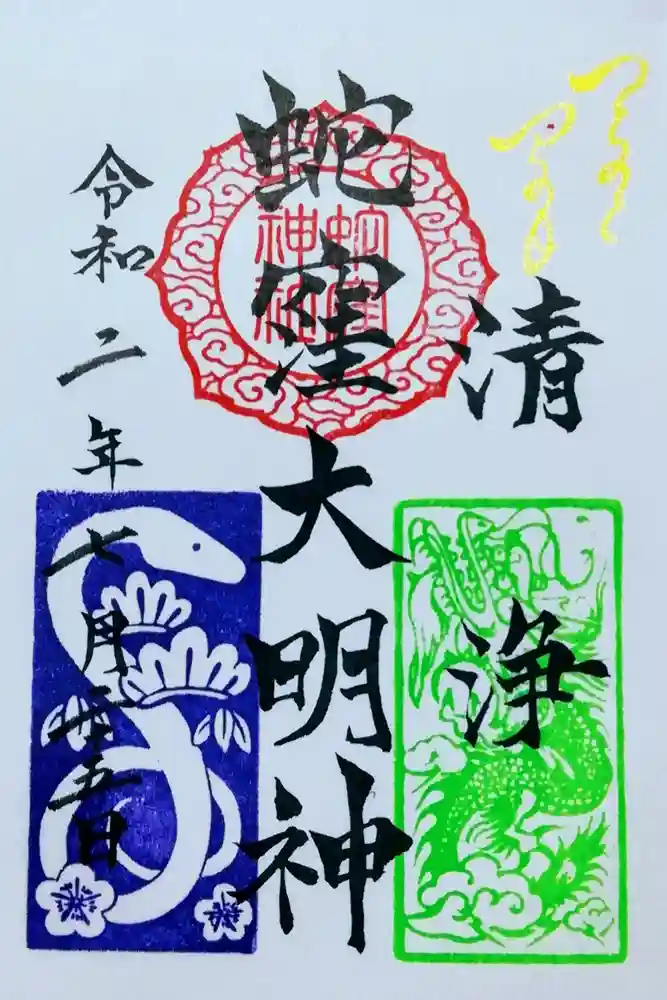 清浄
蛇窪大明神
蛇窪
神社
令和二年七月二十五日